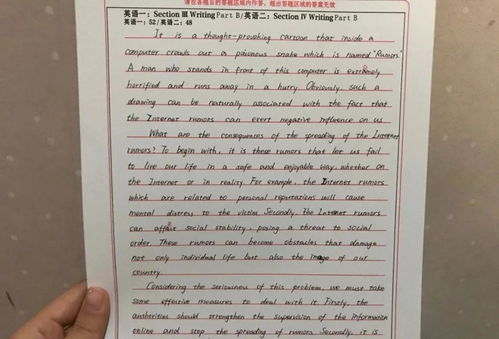 请在各题目的答题区域内作答，超出答题区域的答案无效
英语一：Section III Writing Part B/英语二：Section IV Writing Part B
英语一：52/英语二：48
It is a thought-provoking cartoon that inside a
computer crawls out a poisonous snake which is named "Rumors".
A man who stands in front of this computer is extremely
horrified and runs away in a hurry. Obviously, such a
drawing can be naturally associated with the fact that
the Internet rumors can exert negative influence on us.
What are the consequences of the spreading of the Internet
rumors? To begin with, it is these rumors that let us fail
to live our life in a safe and enjoyable way, whether on
the Internet or in reality. For example, the Internet rumors
which are related to personal reputations will cause
mental distress to the victim. Secondly, the Internet rumors
can affect social stability, posing a threat to social
order. These rumors can become obstacles that damage
not only individual life but also the image of our
country.
Considering the seriousness of this problem, we must take
some effective measures to deal with it. Firstly, the
authorities should strengthen the supervision of the information
online and stop the spreading of rumors. Secondly, it is